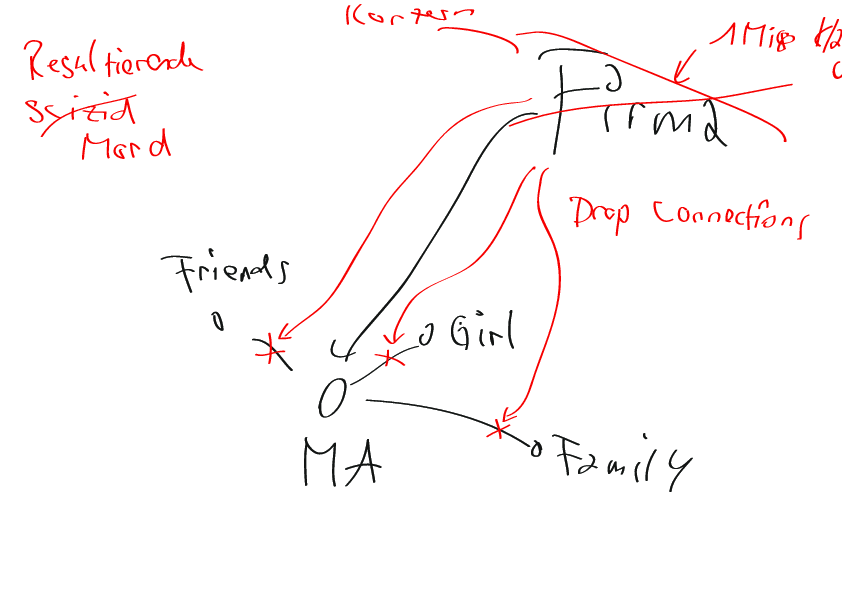 Konzern
1 Mio
Resultierende
Suizid
Mord
Firma
Drop Connections
Friends
Girl
MA
Family